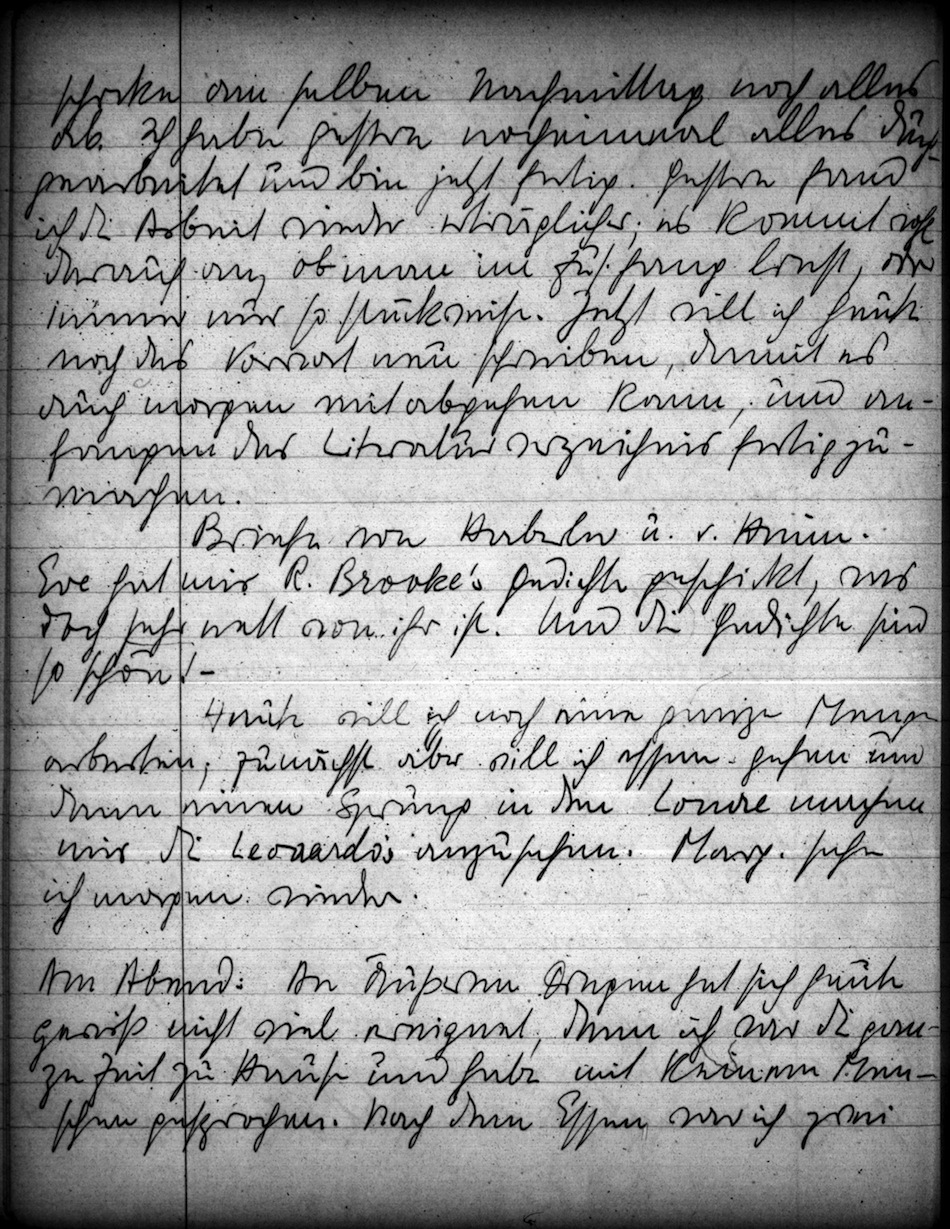 schicke am selben Nachmittag noch alles
ab. Ich habe gestern nocheinmal alles durch-
gearbeitet und bin jetzt fertig. Gestern fand
ich die Arbeit wieder erträglicher; es kommt wohl
darauf an, ob man im Zus.hang liest, oder
immer nur so stückweise. Jetzt will ich heute
noch das Vorwort neu schreiben, damit es
auch morgen mit abgehen kann, und an-
fangen das Literaturverzeichnis fertigzu-
machen.
Briefe von Haberler u. v.
Eve hat mir R. Brooke's Gedichte geschickt, was
doch sehr nett von ihr ist. Und die Gedichte sind
so schön! -
Heute will ich noch eine ganze Menge
arbeiten; zunächst aber will ich essen gehen und
dann einen Sprung in den Louvre machen
mir die Leonardo's anzusehen. Marg. sehe
ich morgen wieder.
Am Abend: An äußeren Dingen hat sich heute
gewiß nicht viel ereignet, denn ich war die gan-
ze Zeit zu Hause und habe mit keinem Men-
schen gesprochen. Nach dem Essen war ich zwei